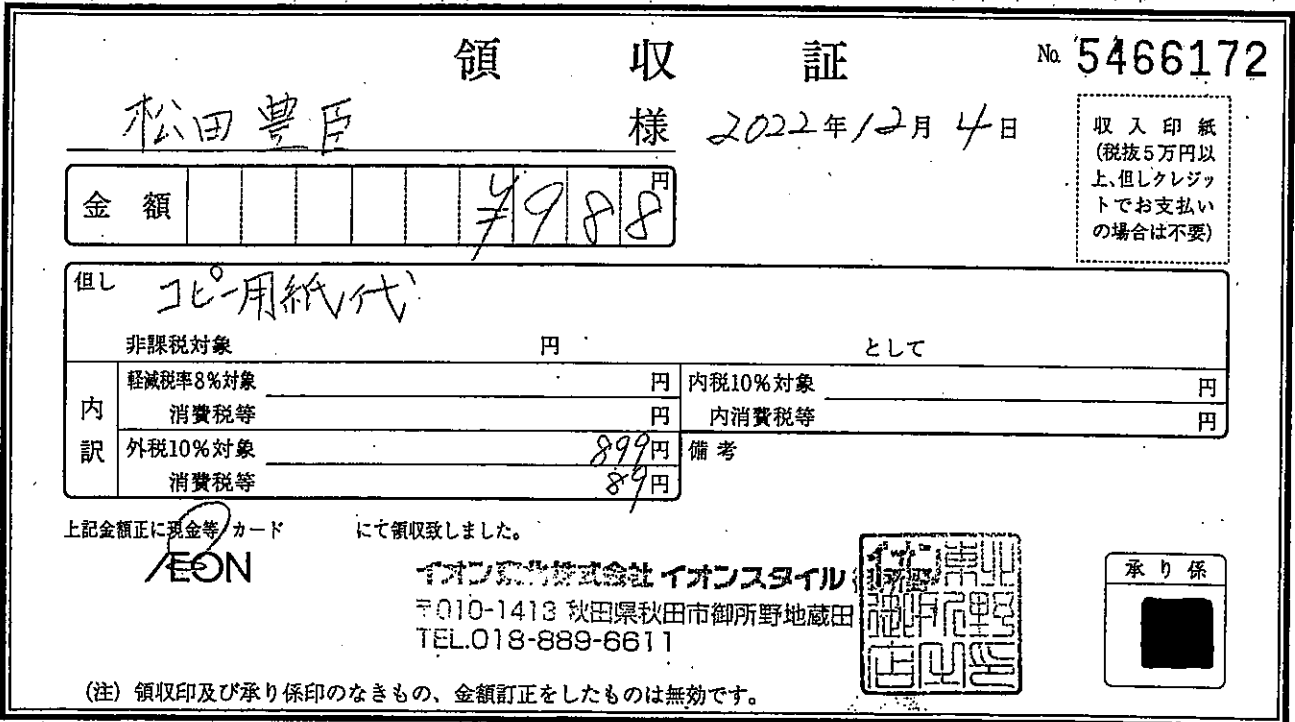 領収証 No. 5466172
松田豊臣 様 2022年12月4日
収入印紙
(税抜5万円以
上、但しクレジッ
トでお支払い
の場合は不要)
金額 ¥988円
但し コピー用紙代
非課税対象 円 として
内訳
軽減税率8%対象 円 内税10%対象 円
消費税等 円 内消費税等 円
外税10%対象 899円 備考
消費税等 89円
上記金額正に現金等/カード にて領収致しました。
ÆON
イオン東北株式会社 イオンスタイル
〒010-1413 秋田県秋田市御所野地蔵田
TEL.018-889-6611
承り係
(注) 領収印及び承り係印のなきもの、金額訂正をしたものは無効です。